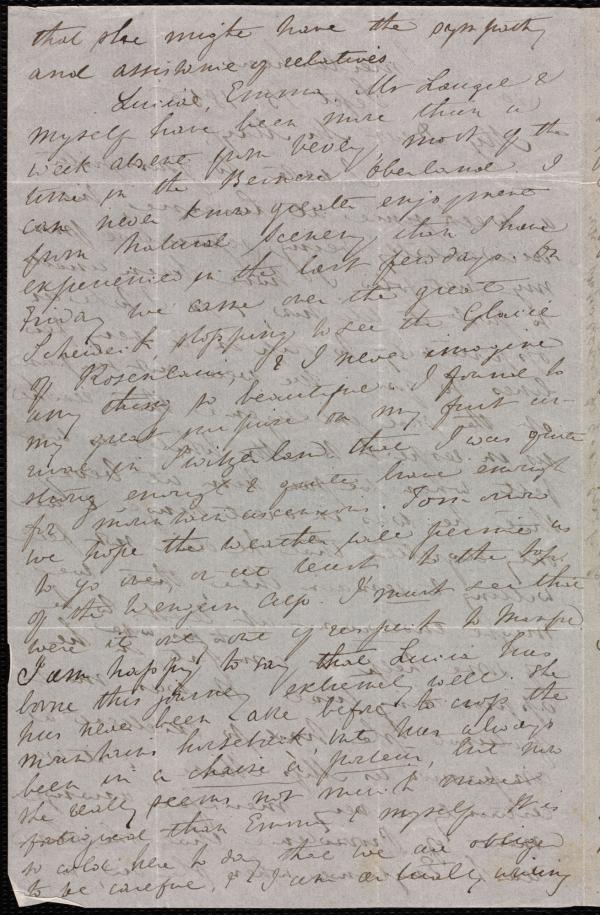 that she might have the sympathy
and assistance of relatives
Lucia, Emma, Mr Laugel &
myself have been more than a
week absent from Vevey, most of the
time in the Bernese Oberland I
can never know greater enjoyment
from Natural Scenery than I have
experience in the last few days. On
Friday we came over the great
Scheideck, stopping to see the Glacie
of Rosenlaui, & I never imagine
any thing so beautiful. I found to
my great surprise on my first ar-
rival in Switzerland that I was quite
strong enough & quite brave enough
for mountain ascensions. Tomorrow
we hope the weather will permit us
to go over, or at least to the top
of the Wengern Alp. I must see this
were it only out of respect to Manfre
I am happy to say that Lucia has
borne this journey extremely well. She
has never been able before to cross the
mountains horseback, but has always
been in a chaise a porteur, but now
she really seems not much more
fatigued than Emma & myself. It is
so cold here to day that we are oblige
to be careful, & I am actually writing